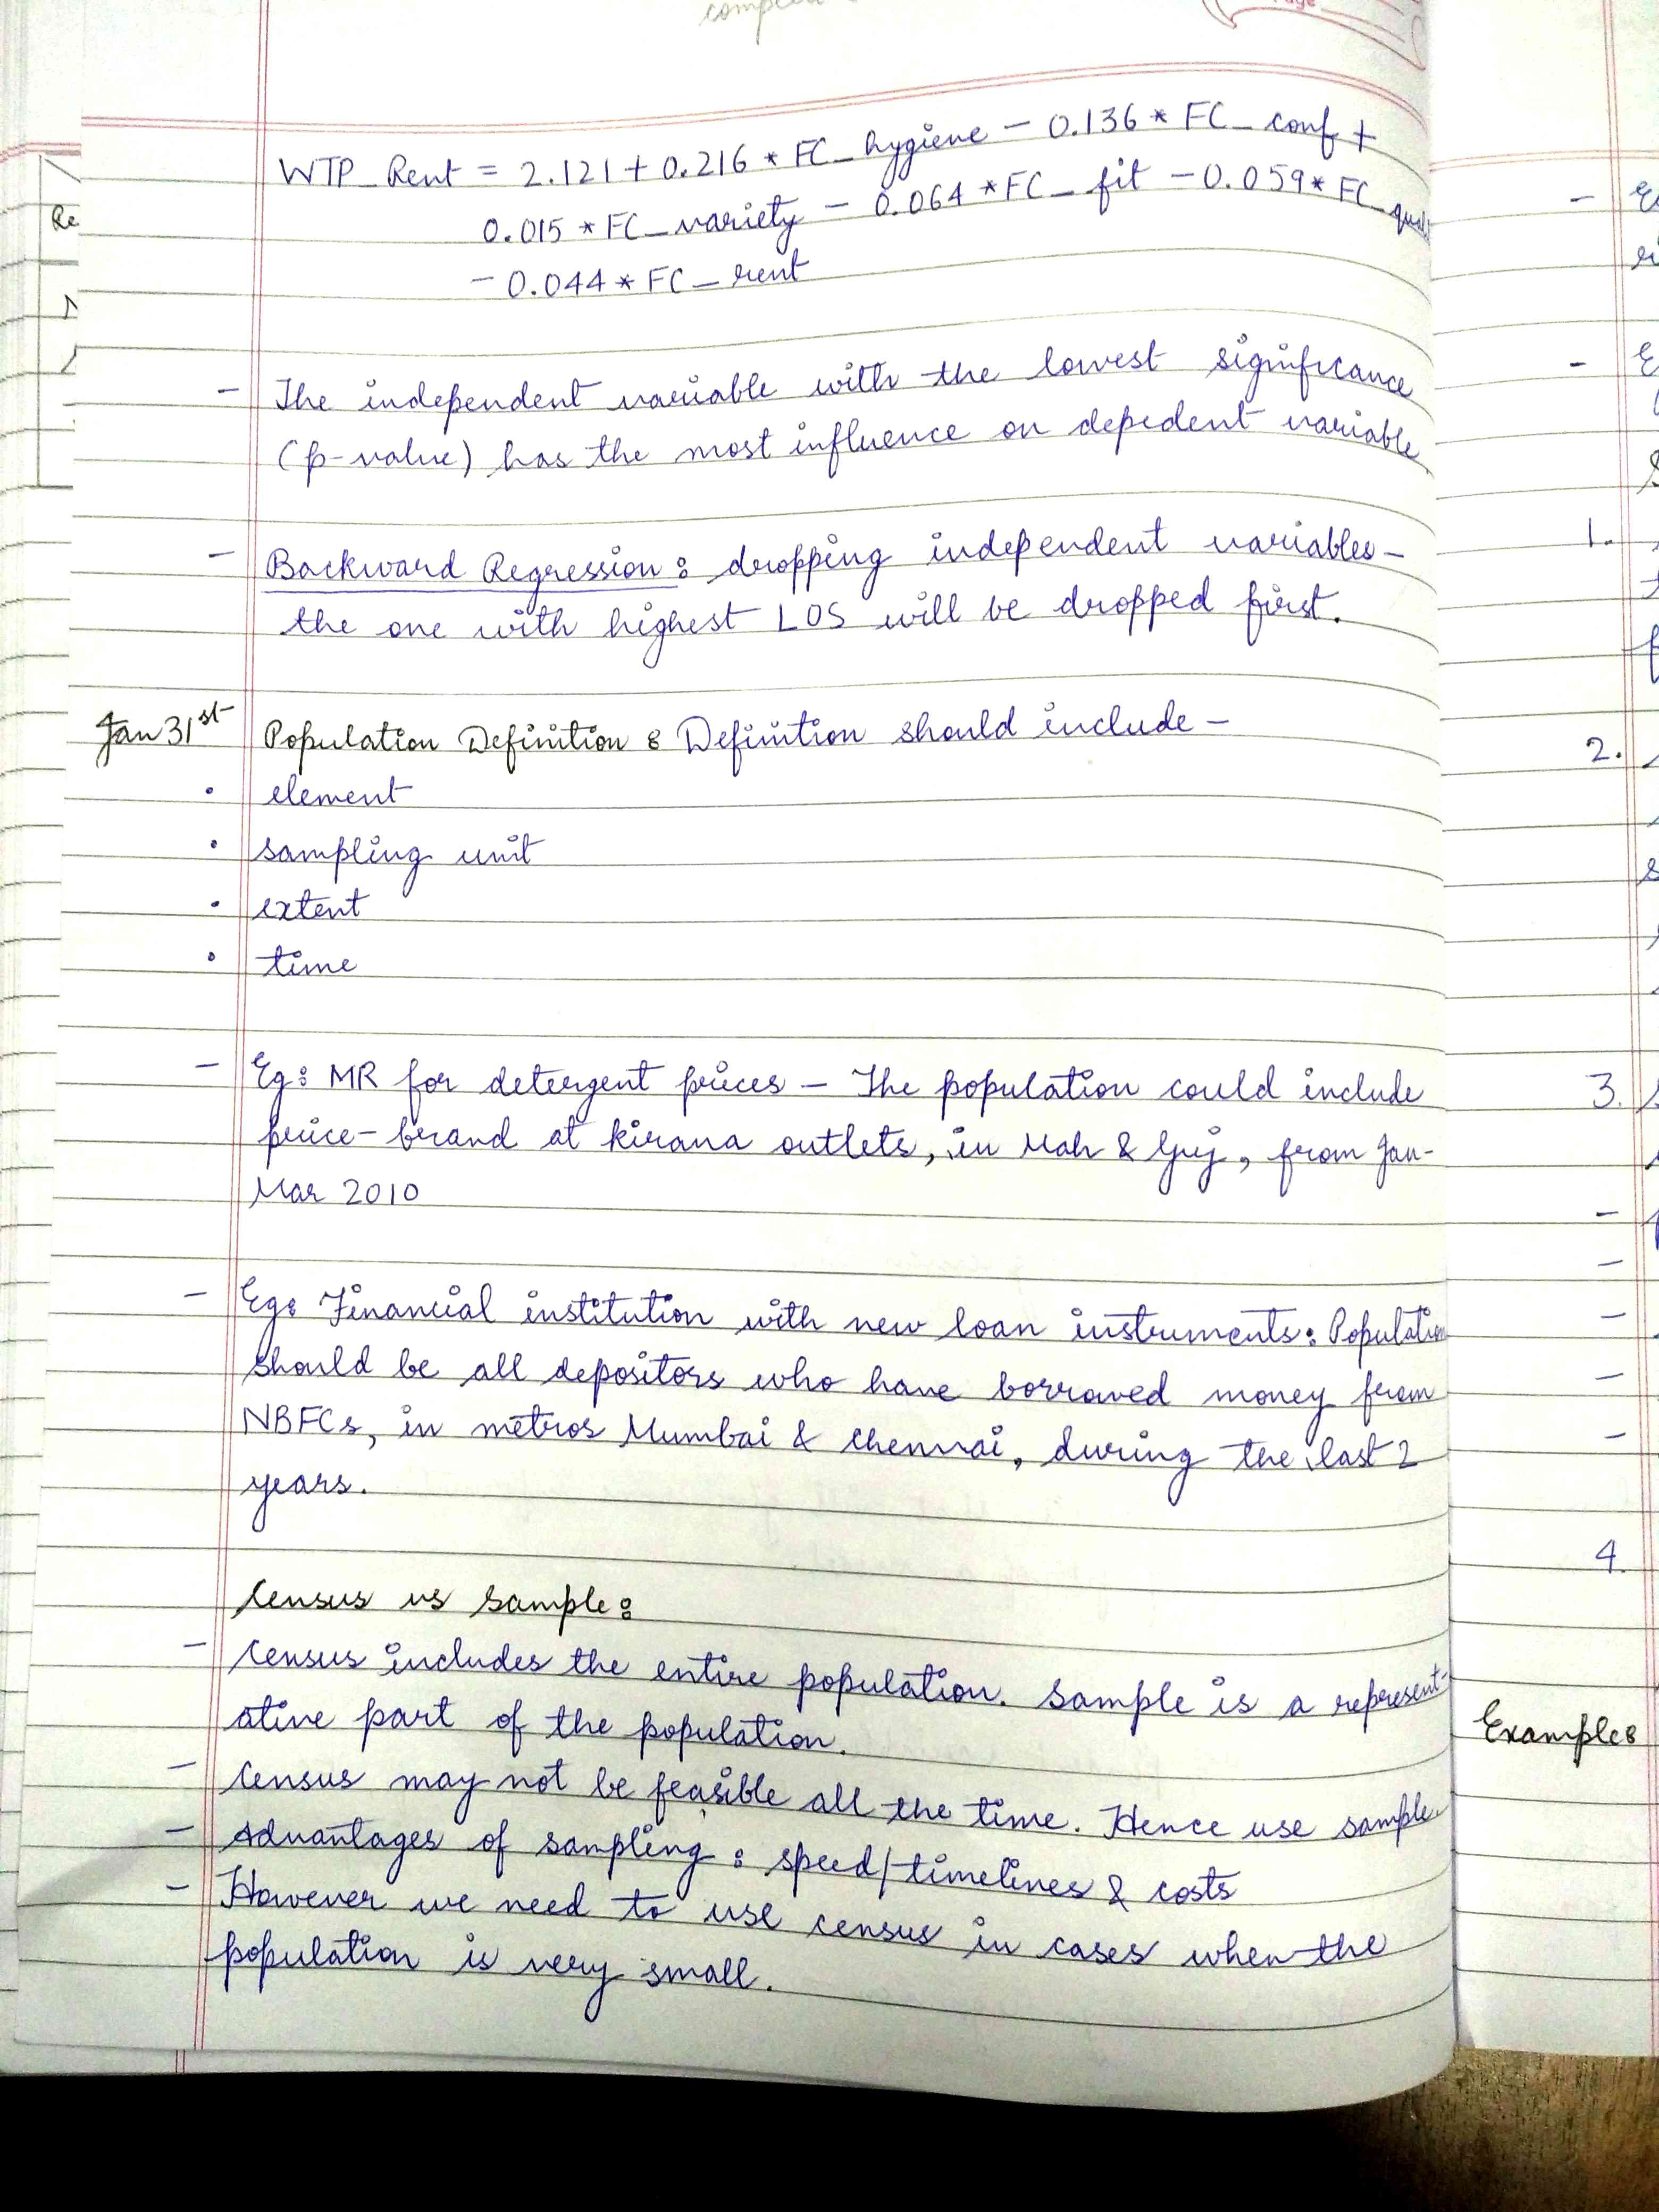 WTP_Rent = 2.121 + 0.216 * FC_hygiene - 0.136 * FC_conf +
0.015 * FC_variety - 0.064 * FC_fit - 0.059 * FC_
- 0.044 * FC_rent
- The independent variable with the lowest significance
(p-value) has the most influence on depedent variable
- Backward Regression: dropping independent variables -
the one with highest LOS will be dropped first.
Jan 31st Population Definition: Definition should include -
• element
• sampling unit
• extent
• time
- Eg: MR for detergent prices - The population could include
price-brand at kirana outlets, in Mah & Guj, from Jan-
Mar 2010
- Eg: Financial institution with new loan instruments: Population
should be all depositors who have borrowed money from
NBFCs, in metros Mumbai & Chennai, during the last 2
years.
Census vs Sample:
- Census includes the entire population. Sample is a represent-
ative part of the population.
- Census may not be feasible all the time. Hence use sample.
- Advantages of sampling: speed/timelines & costs
- However we need to use census in cases when the
population is very small.
Re
1.
2.
3.
4.
Examples